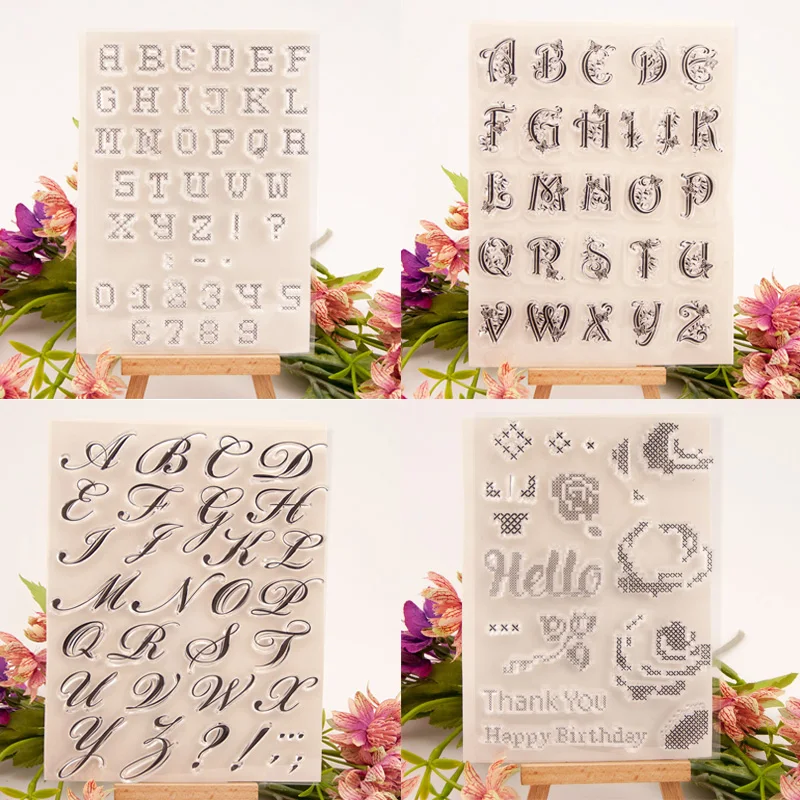 A B C D E F
G H I J K L
M N O P Q R
S T U V W
X Y Z ! ?
: - .
0 1 2 3 4 5
6 7 8 9
A B C D E
F G H I J K
L M N O P
Q R S T U
V W X Y Z
A B C D
E F G H
I J K L
M N O P
Q R S T
U V W X
Y Z ? ! ... , ;
Hello
Thank You
Happy Birthday